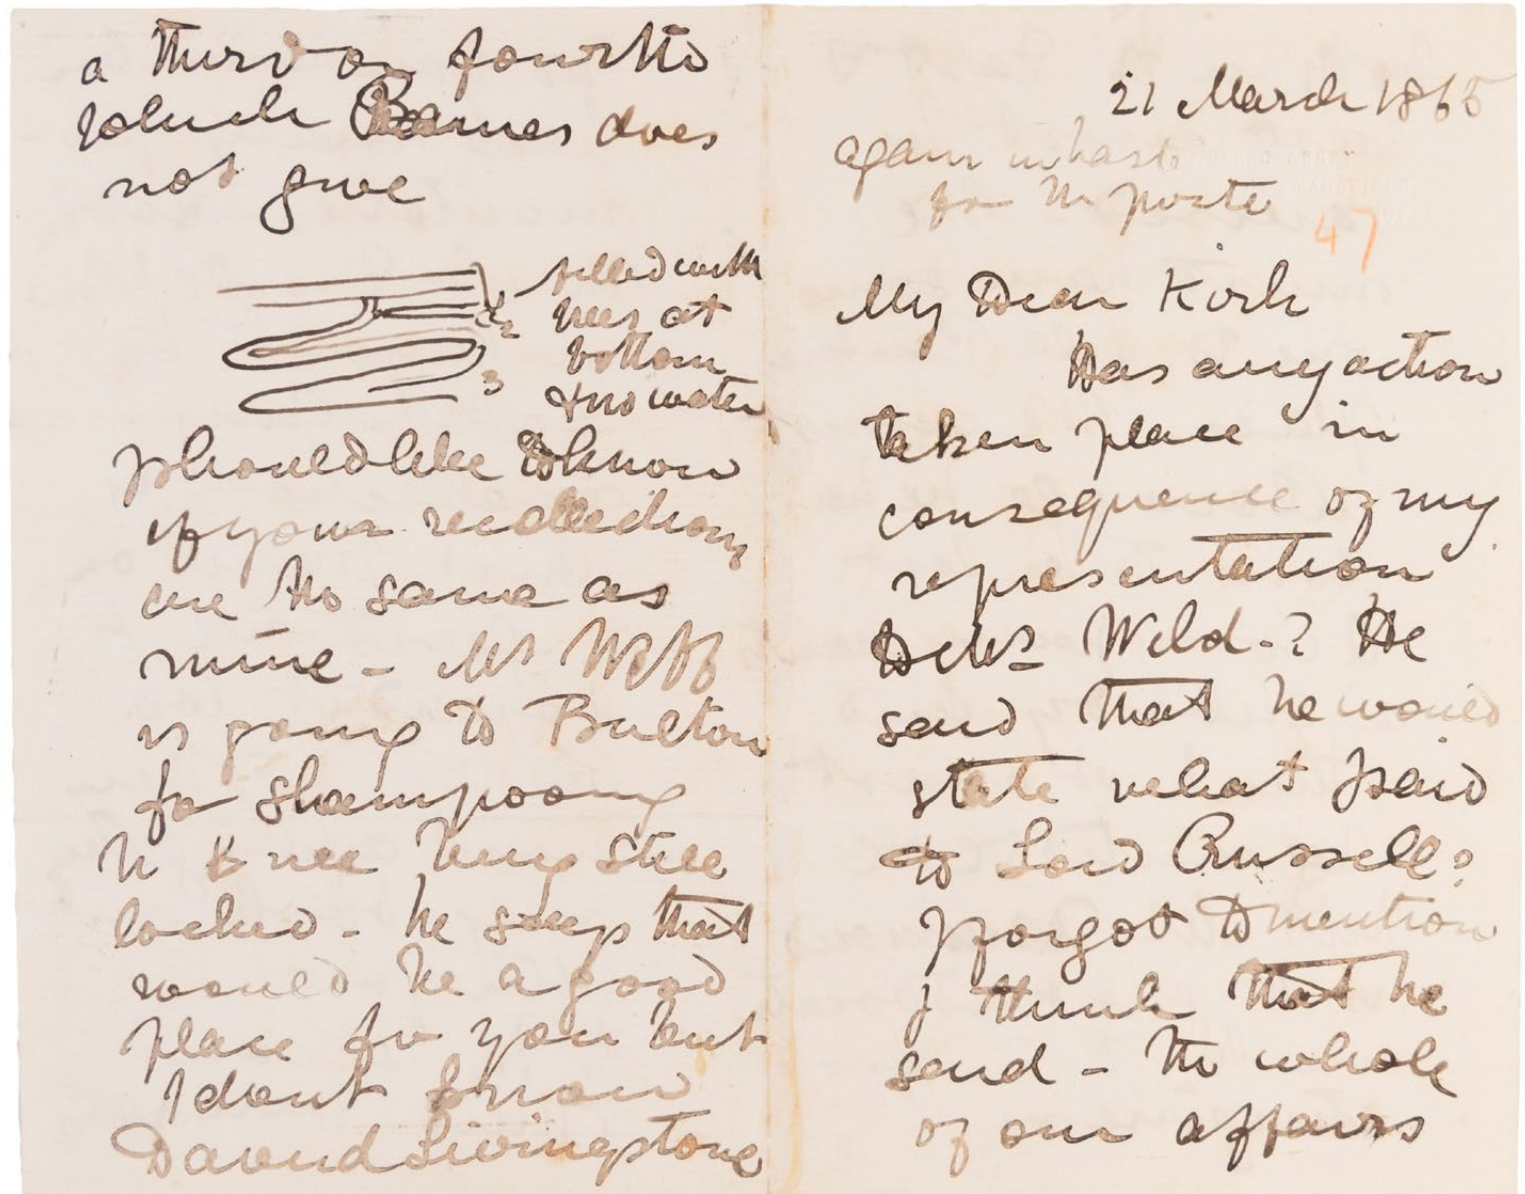 a third or fourth
which Barnes does
not give
filled with
hees at
bottom
& no water
2
3
I should like to know
if your recollections
are the same as
mine - Mr Webb
is going to
for shampooing
the knee being still
locked - he says that
would be a good
place for you but
I dont know
David Livingstone
21 March 1865
again in haste
for the post
47
My Dear Kirk
Has any action
taken place in
consequence of my
representation
to Mr Wild -? He
said that he would
state what I said
to Lord Russell?
I forgot to mention
I think that he
said - the whole
of our affairs